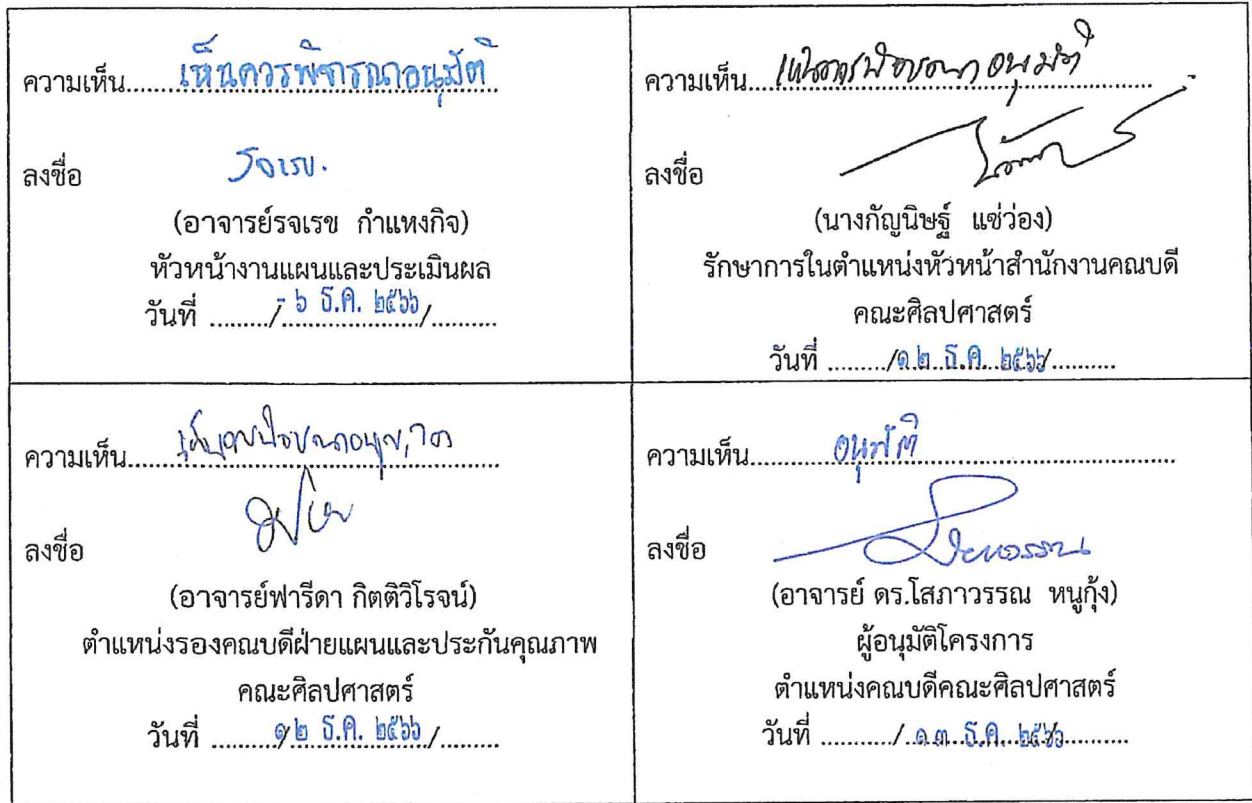 ความเห็น.....เห็นควรพิจารณาอนุมัติ
ลงชื่อ รจเรข.
(อาจารย์รจเรข กำแหงกิจ)
หัวหน้างานแผนและประเมินผล
วันที่ ........./- ๖ ธ.ค. ๒๕๖๖/.........
ความเห็น.....เห็นควรพิจารณาอนุมัติ
ลงชื่อ
(นางกัญนิษฐ์ แซ่ว่อง)
รักษาการในตำแหน่งหัวหน้าสำนักงานคณบดี
คณะศิลปศาสตร์
วันที่ ........./๑ ๒ ธ.ค. ๒๕๖๖/..........
ความเห็น.....
ลงชื่อ
(อาจารย์ฟารีดา กิตติวิโรจน์)
ตำแหน่งรองคณบดีฝ่ายแผนและประกันคุณภาพ
คณะศิลปศาสตร์
วันที่ ........./๑ ๒ ธ.ค. ๒๕๖๖/.........
ความเห็น..........อนุมัติ
ลงชื่อ
(อาจารย์ ดร.โสภาวรรณ หนูกุ้ง)
ผู้อนุมัติโครงการ
ตำแหน่งคณบดีคณะศิลปศาสตร์
วันที่ ........../๑ ๓ ธ.ค. ๒๕๖๖/..........